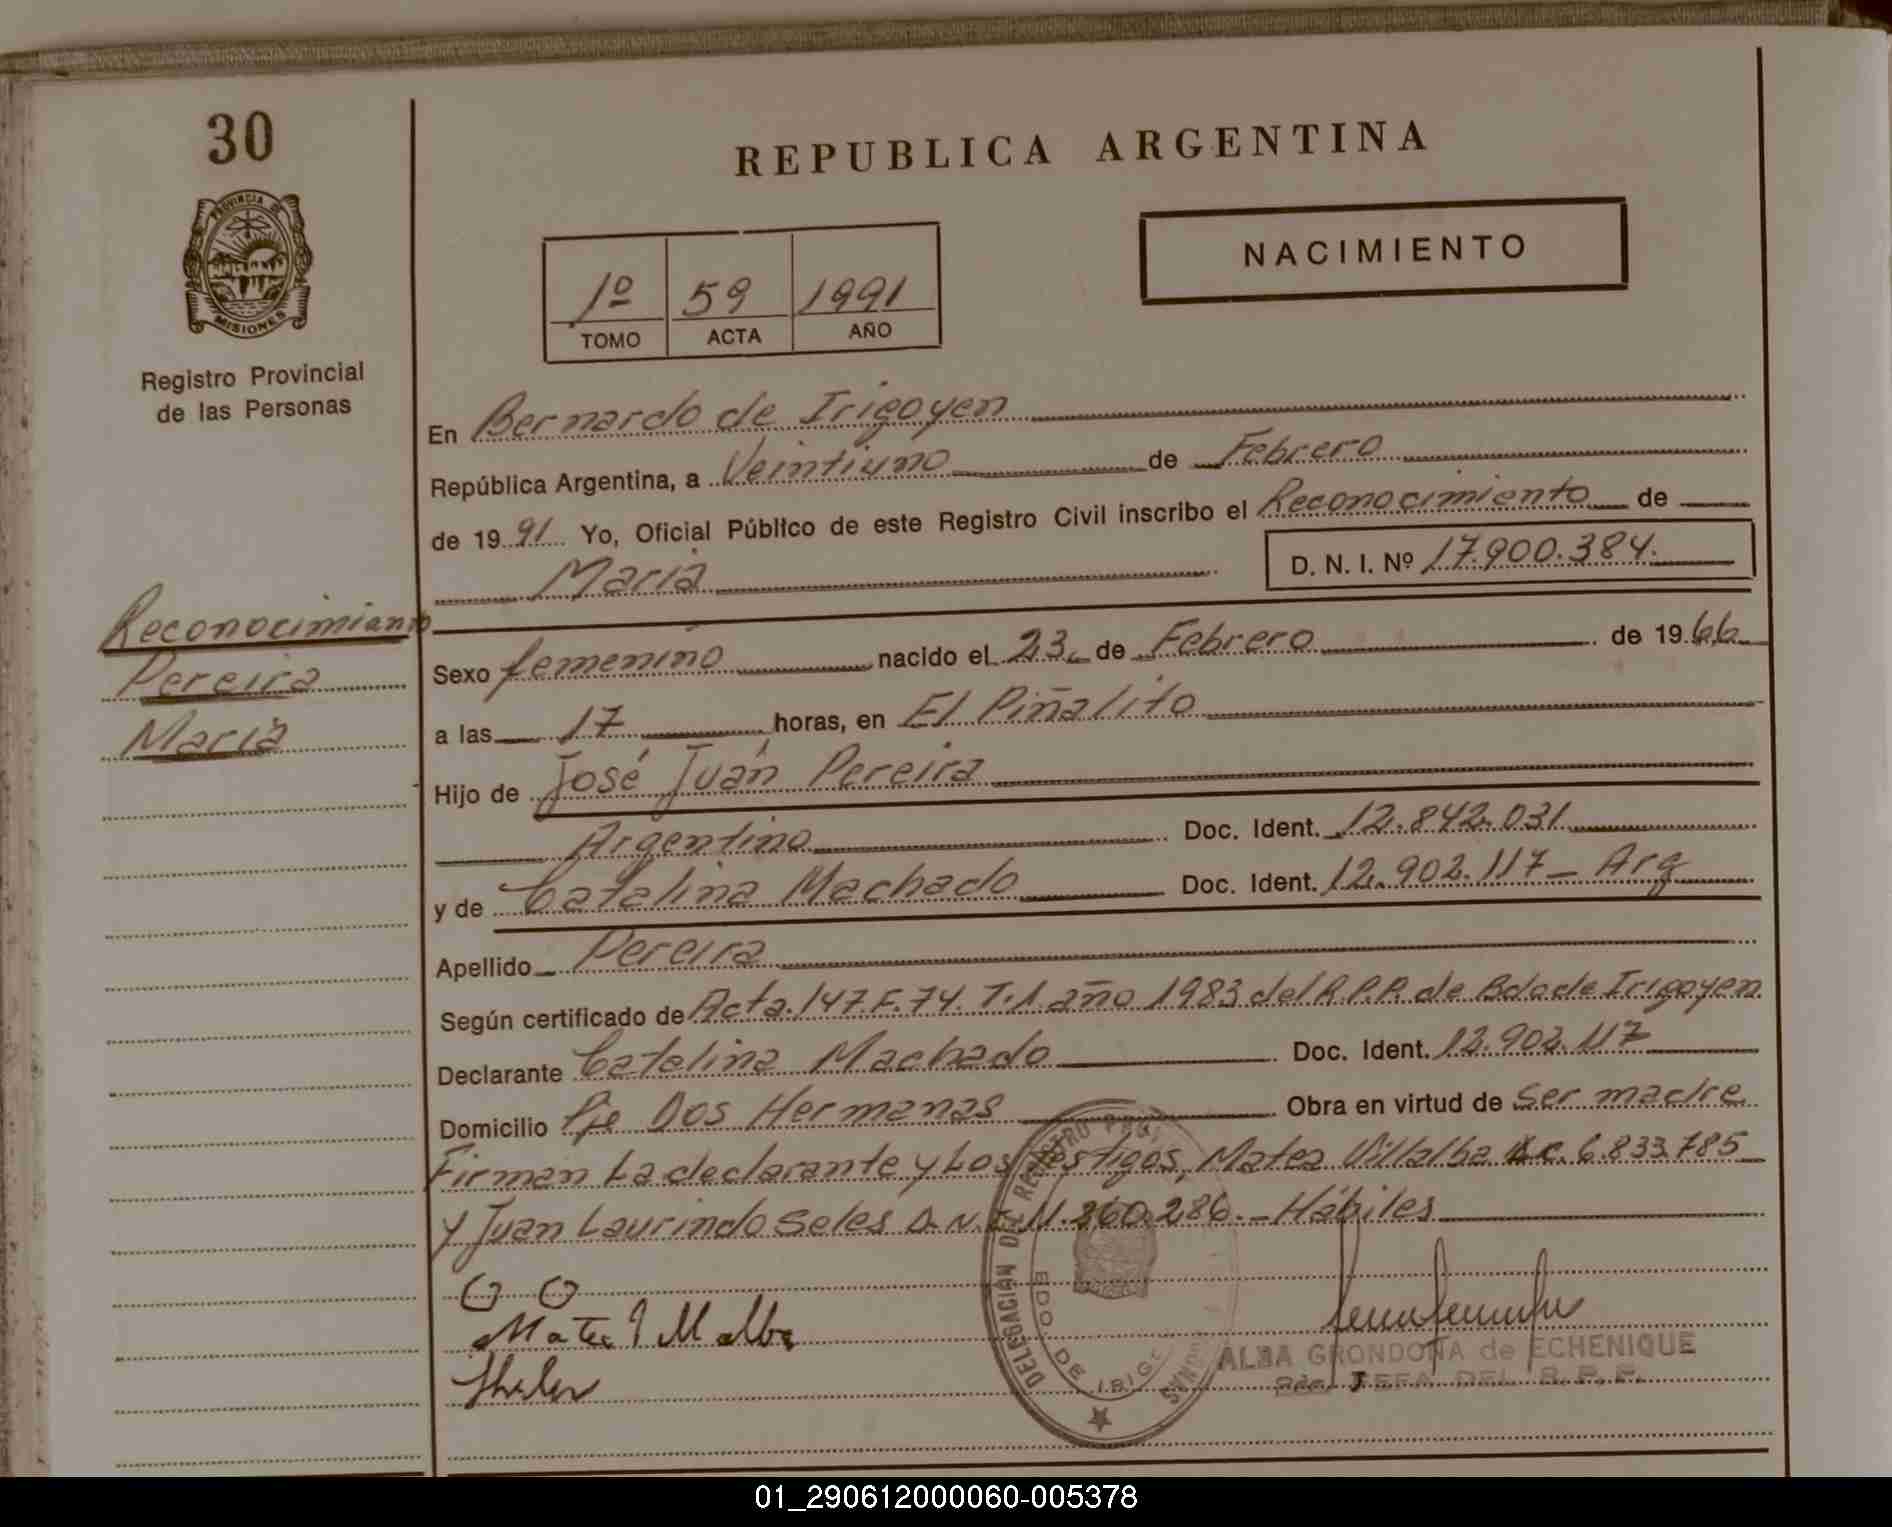 30
PROVINCIA DE
MISIONES
Registro Provincial
de las Personas
REPUBLICA ARGENTINA
NACIMIENTO
1º 59 1991
TOMO ACTA AÑO
En Bernardo de Irigoyen
República Argentina, a Veintiuno de Febrero
de 1991 Yo, Oficial Público de este Registro Civil inscribo el Reconocimiento de
María D. N. I. Nº 17.900.384.
Reconocimiento
Pereira
María
Sexo femenino nacido el 23 de Febrero de 1966
a las 17 horas, en El Piñalito
Hijo de José Juán Pereira
Argentino Doc. Ident. 12.842.031
y de Catalina Machado Doc. Ident. 12.902.117 - Arg
Apellido Pereira
Según certificado de Acta.147.F.74.T.1.año 1983 del R.P.P. de Bdo de Irigoyen
Declarante Catalina Machado Doc. Ident. 12.902.117
Domicilio Pje Dos Hermanas Obra en virtud de ser madre
Firman La declarante y Los testigos, Matea Villalba L.C. 6.833.785
y Juan Laurindo Seles D.N.I. 11.860.286.- Hábiles
DELEGACIÓN DEL REGISTRO
DE IRIG
ALBA GRONDONA de ECHENIQUE
JEFA DEL R. P. P.
01_290612000060-005378